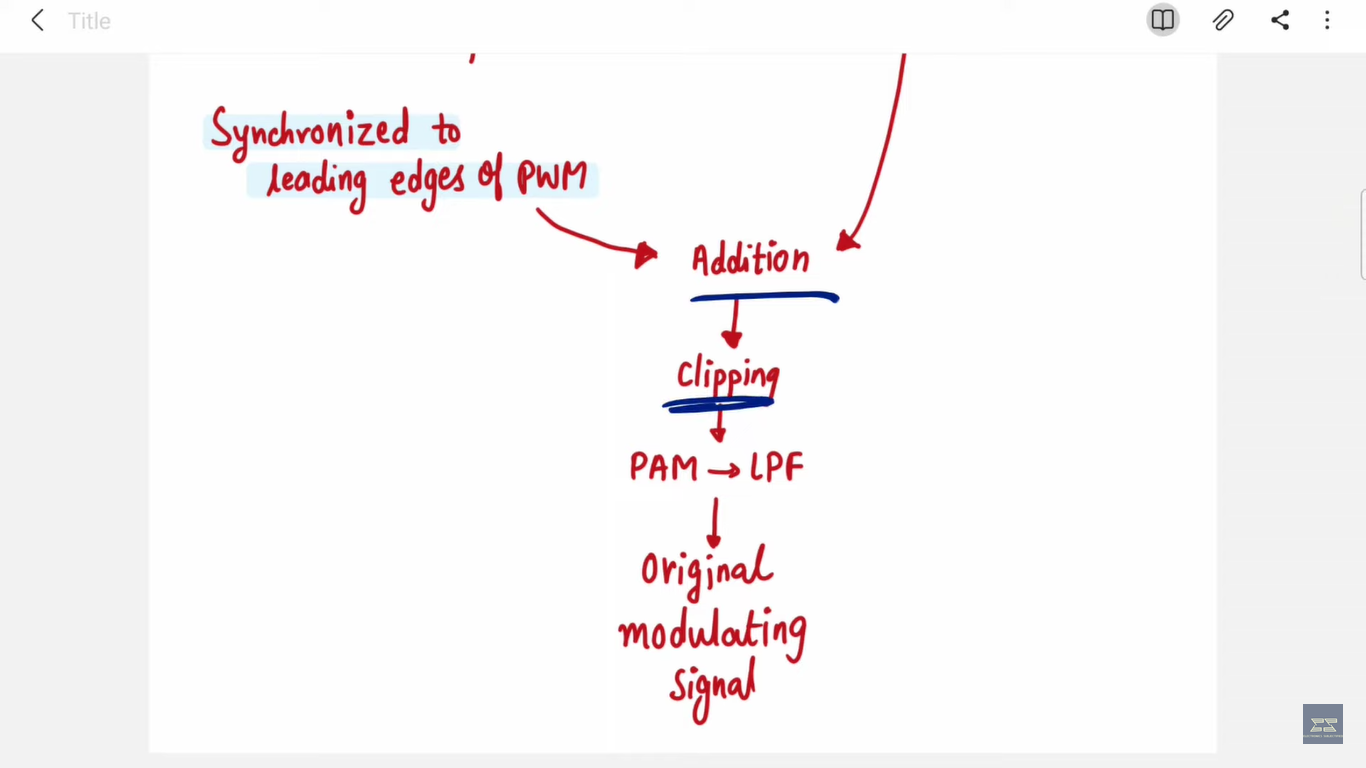 Title
Synchronized to
leading edges of PWM
Addition
Clipping
PAM → LPF
Original
modulating
signal